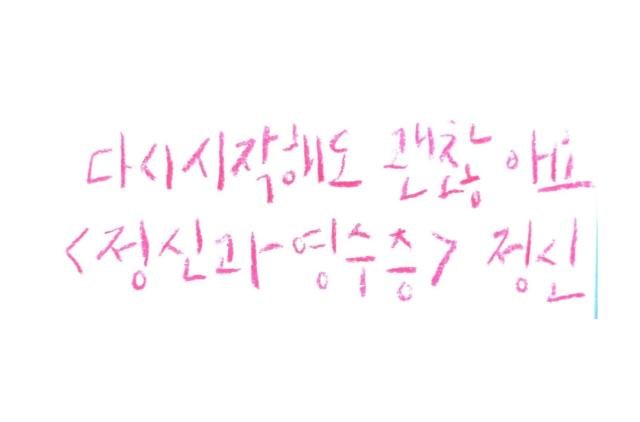 다시시작해도 괜찮아요
<정신과 영수증> 정신